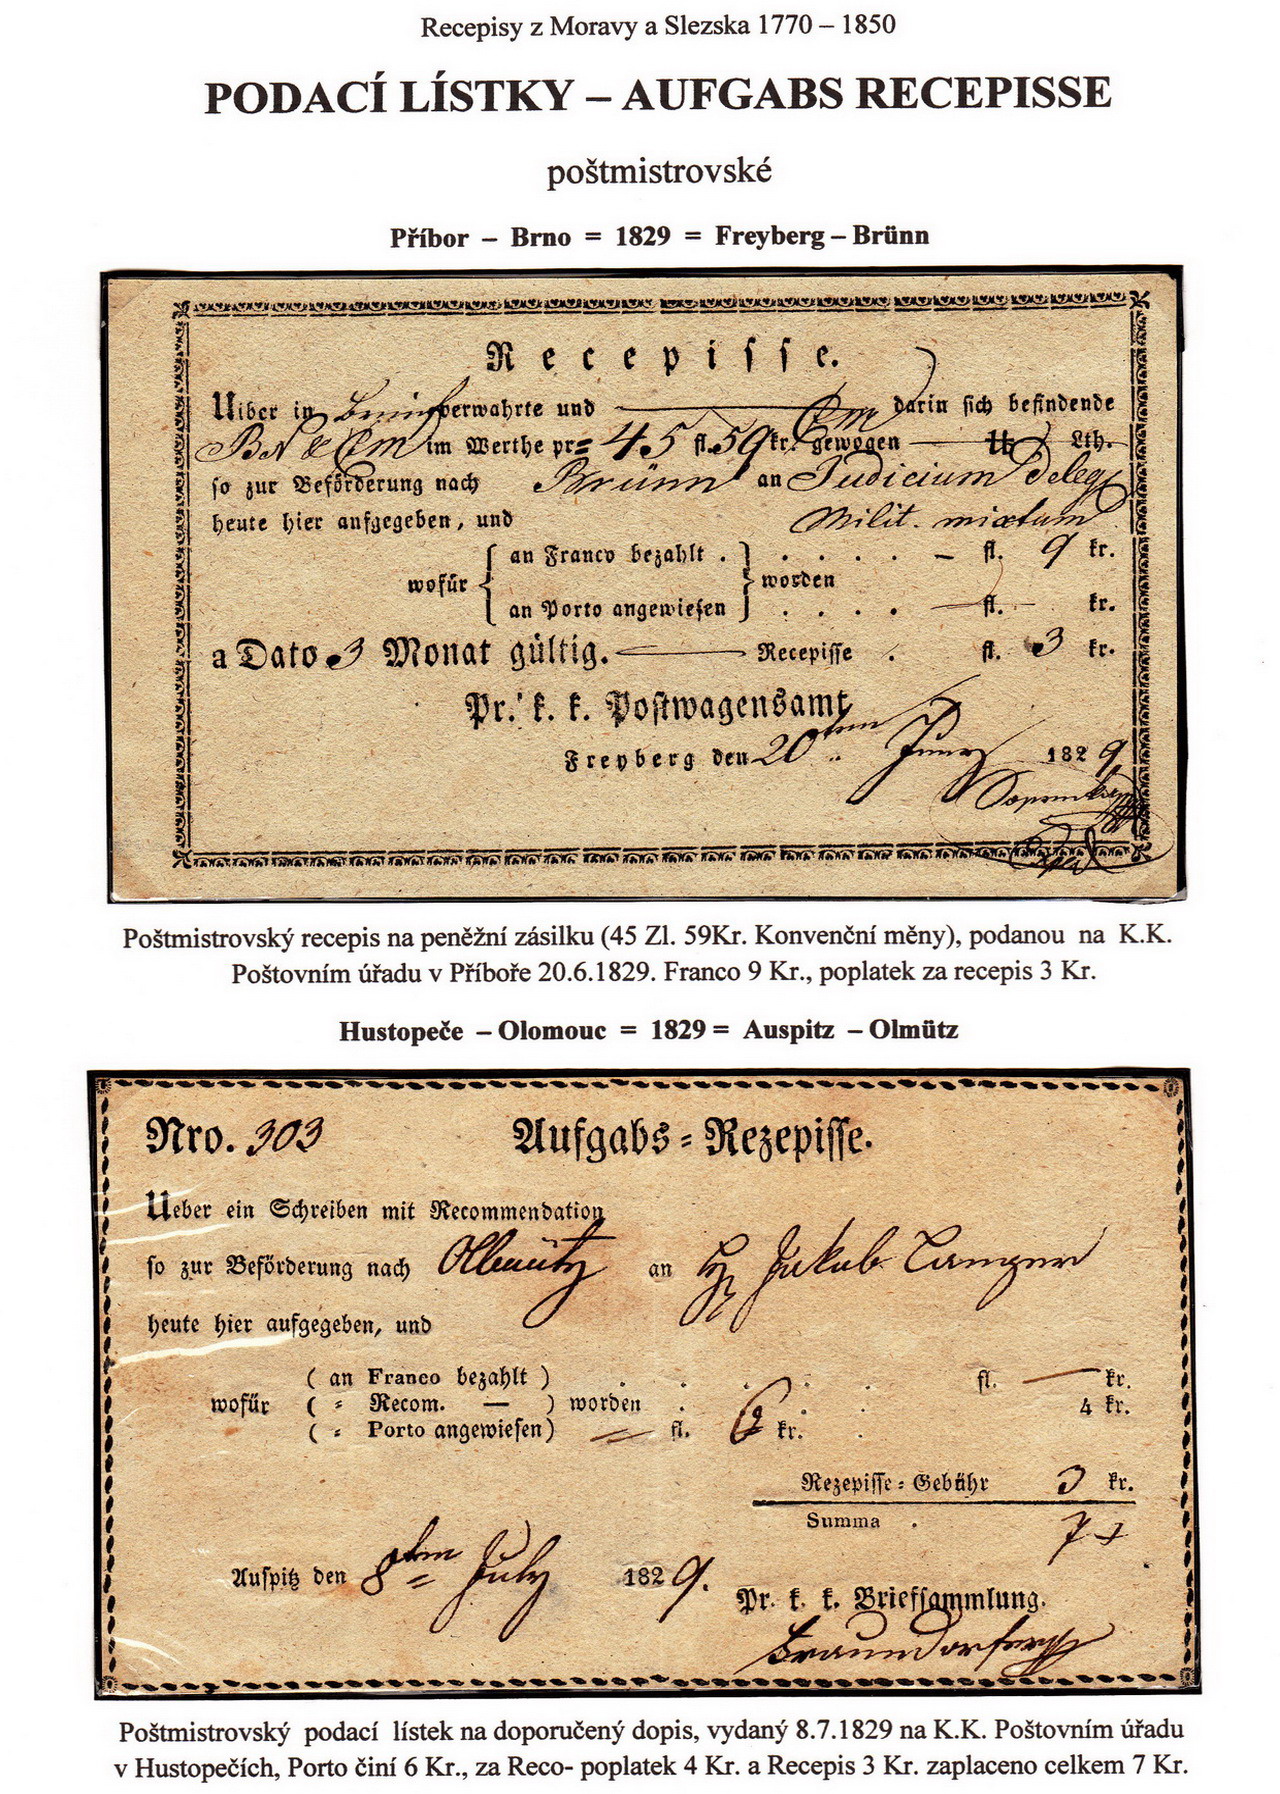 Recepisy z Moravy a Slezska 1770 – 1850
PODACÍ LÍSTKY – AUFGABS RECEPISSE
poštmistrovské
Příbor – Brno = 1829 = Freyberg – Brünn
Recepisse.
Uiber in verwahrte und darin sich befindende
im Werthe pr 45 fl. 59 kr. gewogen lb Lth.
so zur Beförderung nach Brünn an Judicium deleg
heute hier aufgegeben, und Milit. mixtum
an Franco bezahlt . . . . . – fl. 9 kr.
wofür worden
an Porto angewiesen . . . . — fl. — kr.
a Dato 3 Monat gültig. Recepisse . fl. 3 kr.
Pr. k. k. Postwagensamt
Freyberg den 20ten Juny 1829.
Poštmistrovský recepis na peněžní zásilku (45 Zl. 59Kr. Konvenční měny), podanou na K.K.
Poštovním úřadu v Příboře 20.6.1829. Franco 9 Kr., poplatek za recepis 3 Kr.
Hustopeče – Olomouc = 1829 = Auspitz – Olmütz
Nro. 303 Aufgabs-Rezepisse.
Ueber ein Schreiben mit Recommendation
so zur Beförderung nach Ollmütz an H. Jakob Langer
heute hier aufgegeben, und
( an Franco bezahlt ) . . . . fl. — kr.
wofür ( = Recom. — ) worden . . . 4 kr.
( = Porto angewiesen) — fl. 6 kr. .
Rezepisse-Gebühr 3 kr.
Summa . 7 x
Auspitz den 8ten July 1829.
Pr. k. k. Briefsammlung.
Poštmistrovský podací lístek na doporučený dopis, vydaný 8.7.1829 na K.K. Poštovním úřadu
v Hustopečích, Porto činí 6 Kr., za Reco- poplatek 4 Kr. a Recepis 3 Kr. zaplaceno celkem 7 Kr.